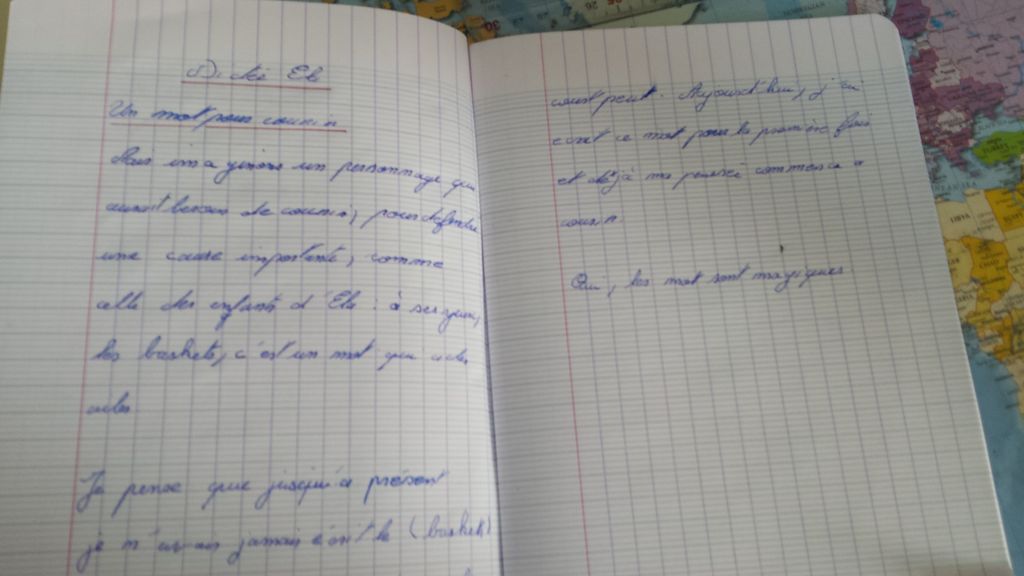 Dictée Ela
Un mot pour courir
Mais imaginons un personnage qui
aurait besoin de courir, pour défendre
une cause importante, comme
celle des enfants d'Ela : à ses yeux,
les baskets, c'est un mot qui a des
ailes.
Je pense que jusqu'à présent
je n'avais jamais écrit le (baskets)
court peut. Aujourd'hui, j'ai
écrit ce mot pour la première fois
et déjà ma pensée commence a
courir.
Oui, les mot sont magiques
30
20